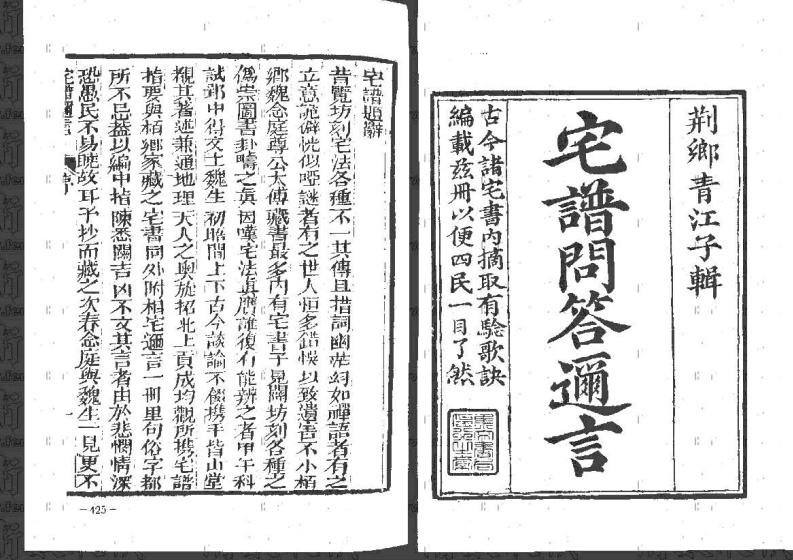 荆鄉青江子輯
宅譜問答邇言
古今諸宅書内摘取有驗歌訣
編載茲冊以便四民一目了然
宅譜邇辭
昔覽坊刻宅法各種不一其傳且措詞幽華幻如禪語者有之
立意詭僻恍似啞謎者有之世人恒多錯悞以致遺害不小栢
鄉魏念庭尊公太傅藏書最多内有宅書予見闢坊刻各種之
偽祟圖書卦疇之真因嘆宅法真贋誰復有能辨之者甲午科
試郢中得交土魏生初昭間上下古今談論不倦携手皆山堂
覩其著述兼通地理天人之奥旋招北上貢成均觀所携宅譜
指要與栢鄉家藏之宅書同外附相宅邇言一冊里句俗字都
所不忌益以編中指陳悉關吉凶不文其言者由於悲憫情深
恐愚民不易曉故耳予抄而藏之次春念庭與魏生一見更不
宅譜邇言
一
-425-